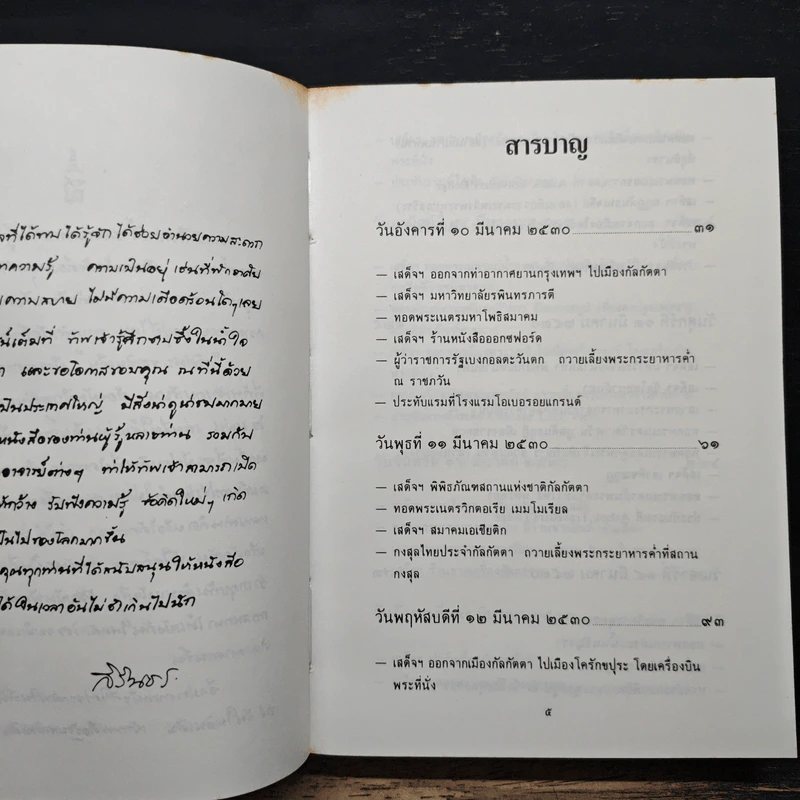 ที่ได้พบ ได้รู้จัก ได้ช่วยอำนวยความสะดวก
ความรู้ ความเป็นอยู่ เช่นที่พักอาศัย
ความสบาย ไม่มีความเดือดร้อนใดๆเลย
เต็มที่ ข้าพเจ้ารู้สึกซาบซึ้งในน้ำใจ
และขอโอกาสขอบคุณ ณ ที่นี้ด้วย
เป็นประเทศใหญ่ มีสิ่งน่าดูน่าชมมากมาย
หนังสือของท่านผู้รู้หลายท่าน รวมกับ
อาจารย์ต่างๆ ทำให้ข้าพเจ้าสามารถเปิด
รับฟังความรู้ ข้อคิดใหม่ๆ เกิด
เป็นไปของโลกมากขึ้น
คุณทุกท่านที่ได้สนับสนุนให้หนังสือ
ได้ในเวลาอันไม่ช้าเกินไปนัก
สิรินธร
สารบาญ
วันอังคารที่ ๑๐ มีนาคม ๒๕๓๐ ๓๑
– เสด็จฯ ออกจากท่าอากาศยานกรุงเทพฯ ไปเมืองกัลกัตตา
– เสด็จฯ มหาวิทยาลัยรพินทรภารตี
– ทอดพระเนตรมหาโพธิสมาคม
– เสด็จฯ ร้านหนังสือออกซฟอร์ด
– ผู้ว่าราชการรัฐเบงกอลตะวันตก ถวายเลี้ยงพระกระยาหารค่ำ
ณ ราชภวัน
– ประทับแรมที่โรงแรมโอเบอรอยแกรนด์
วันพุธที่ ๑๑ มีนาคม ๒๕๓๐ ๖๑
– เสด็จฯ พิพิธภัณฑสถานแห่งชาติกัลกัตตา
– ทอดพระเนตรวิกตอเรีย เมมโมเรียล
– เสด็จฯ สมาคมเอเชียติก
– กงสุลไทยประจำกัลกัตตา ถวายเลี้ยงพระกระยาหารค่ำที่สถาน
กงสุล
วันพฤหัสบดีที่ ๑๒ มีนาคม ๒๕๓๐ ๙๓
– เสด็จฯ ออกจากเมืองกัลกัตตา ไปเมืองโครักขปุระ โดยเครื่องบิน
พระที่นั่ง
๕